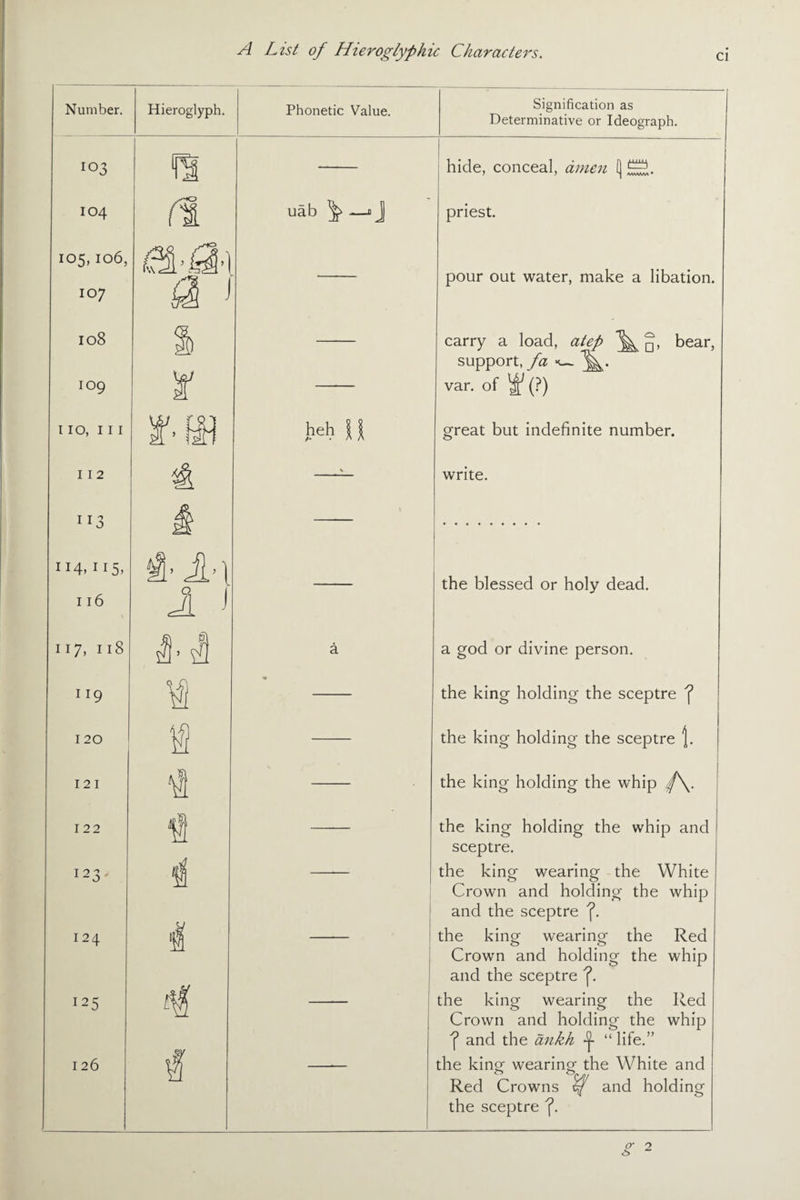 A List of Hieroglyphic Characters.
ci
Number. Hieroglyph. Phonetic Value. Signification as
Determinative or Ideograph.
103 —— hide, conceal, ȧmen 𓇋𓏠𓈖.
104 uāb 𓅱𓂝𓃀 priest.
105, 106,
107 —— pour out water, make a libation.
108 —— carry a load, atep 𓄿𓏏𓊪, bear,
support, fa 𓆑𓄿.
109 —— var. of 𓁨 (?)
110, 111 𓁨, ḥeḥ 𓎛𓎛 great but indefinite number.
112 —— write.
113 —— .........
114, 115,
116 —— the blessed or holy dead.
117, 118 ȧ a god or divine person.
119 —— the king holding the sceptre 𓋾
120 —— the king holding the sceptre 𓌀.
121 —— the king holding the whip 𓌅.
122 —— the king holding the whip and
sceptre.
123 —— the king wearing the White
Crown and holding the whip
and the sceptre 𓋾.
124 —— the king wearing the Red
Crown and holding the whip
and the sceptre 𓋾.
125 —— the king wearing the Red
Crown and holding the whip
𓋾 and the ānkh 𓋹 “life.”
126 —— the king wearing the White and
Red Crowns 𓋖 and holding
the sceptre 𓋾.
g 2